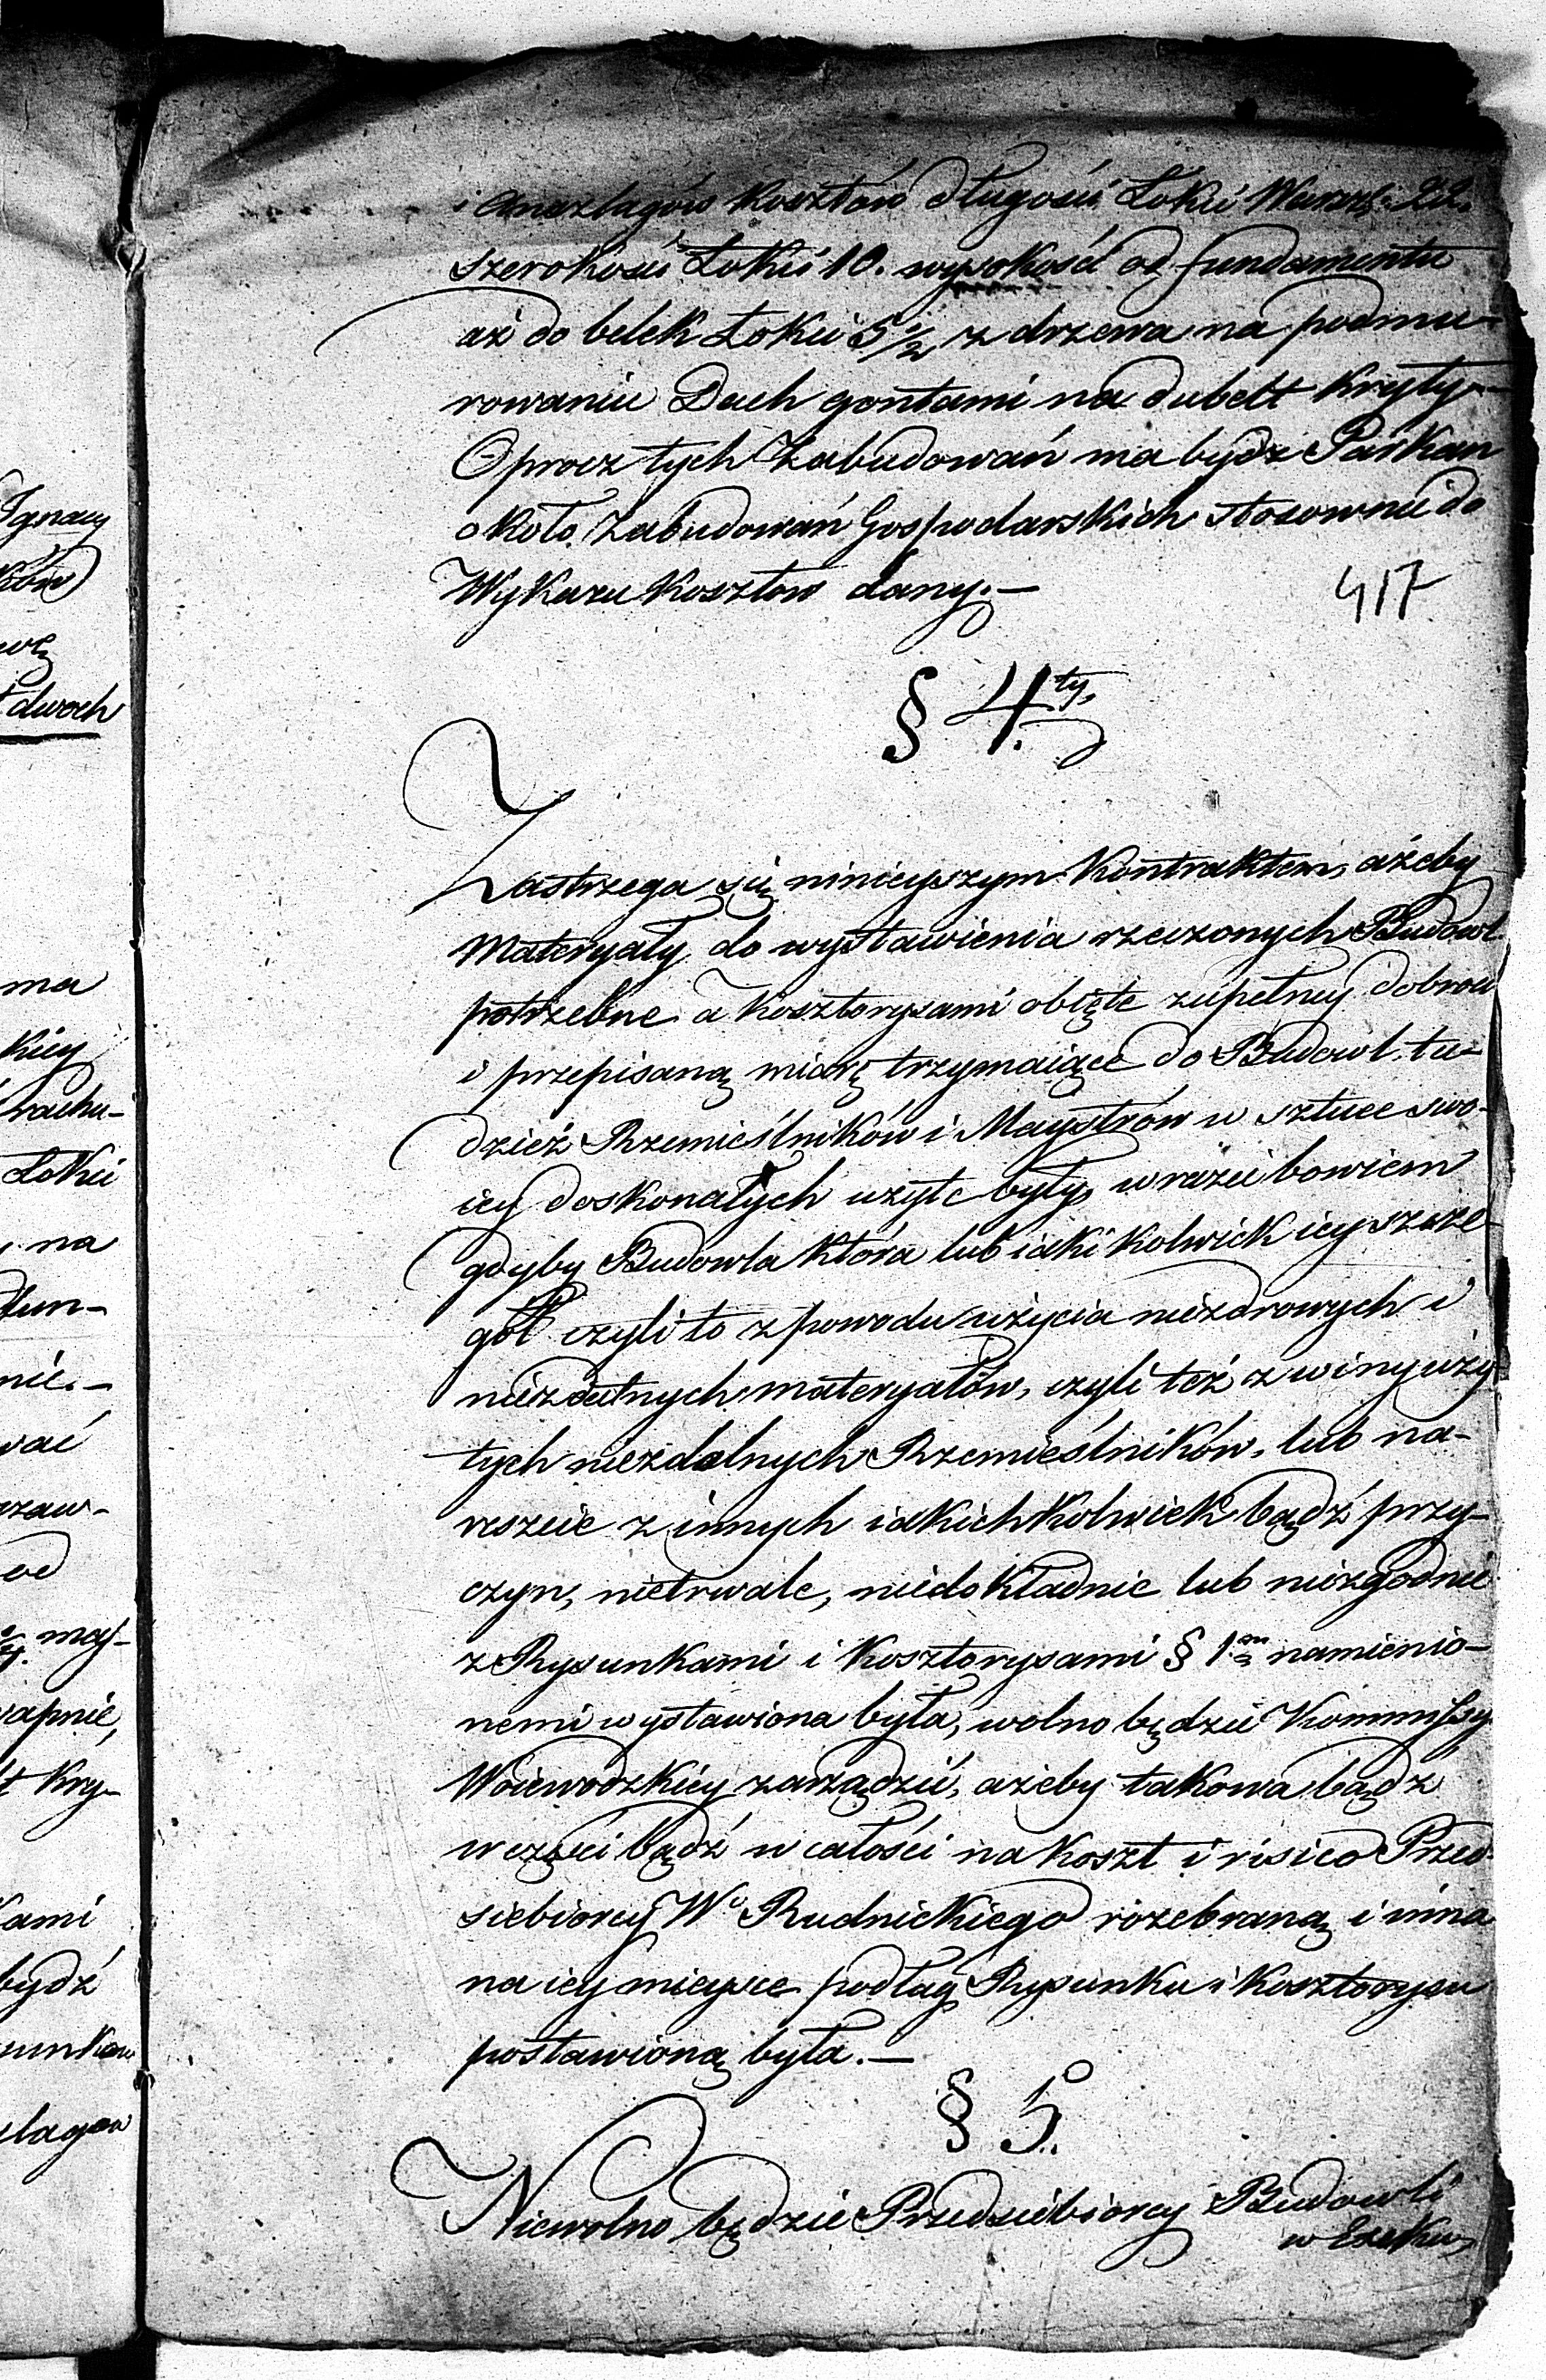 Ignacy
ków
wę
dwoch
ma
kiey
rachu-
Łokci
na
fun-
nie.-
wać
rzaw-
od
may-
wapnie,
kry-
kami
bydź
sunkow
szlagow
i Anszlagów Kosztów długości Łokci Warsz: 22.
szerokości Łokci 10. wysokość od fundamentu
aż do belek Łokci 5 1/2 z drzewa na podmu-
rowaniu Dach gontami na dubelt Kryty.-
Oprocz tych Zabudowań ma bydz Parkan
około Zabudowań Gospodarskich stosownie do
Wykazu Kosztow dany.-
417
§ 4.ty
Zastrzega się ninieyszym Kontraktem, ażeby
Materyały do wystawienia rzeczonych Budowl
potrzebne a Kosztorysami obięte zupełney dobroci
i przepisaną miarę trzymaiące do Budowl. tu-
dzież Rzemieślników i Maystrów w sztuce swo-
iey doskonałych użyte były, w razie bowiem
gdyby Budowla Która lub iaki kolwiek iey szcze-
goł czyli to z powodu użycia niezdrowych i
niezdatnych materyałów, czyli też z winy uży
tych niezdolnych Rzemieślników, lub na-
reszcie z innych iakichkolwiek bądź przy-
czyn, nietrwale, niedokładnie lub niezgodnie
z Rysunkami i Kosztorysami § 1.m namienio-
nemi wystawiona była, wolno będzie Kommissyi
Woiewodzkiey zarządzić, ażeby takowa bądz
w części bądź w całości na koszt i risico Przed-
siebiorcy Wo Rudnickiego rozebraną i inna
na iey mieysce podług Rysunku i Kosztorysu
postawioną była.-
§ 5.
Niewolno będzie Przedsiebiorcy Budowli
w Exeku,